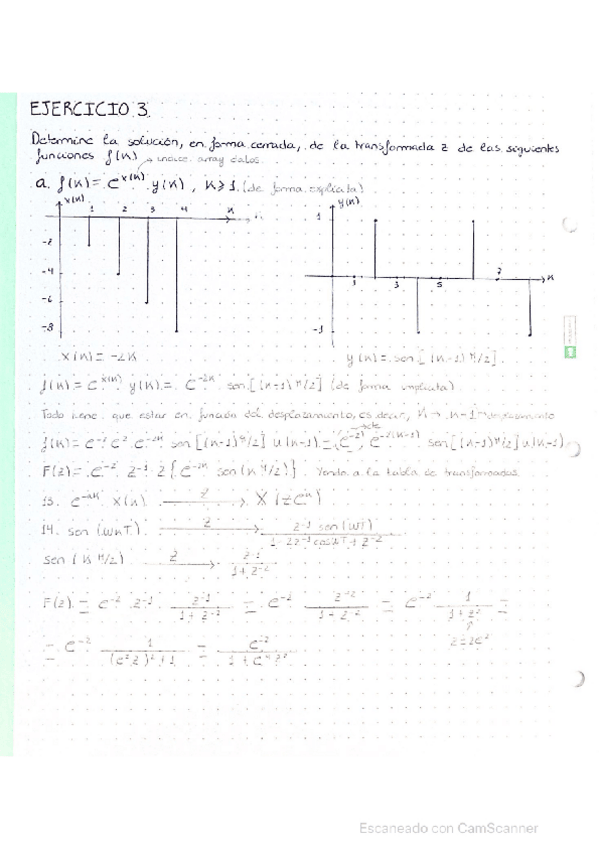 EJERCICIO 3.
Determine la solución, en forma cerrada, de la transformada z de las siguientes
funciones f(k) → índice array datos.
a. f(k) = e^x(k) · y(k), k ≥ 1 (de forma explícita)
x(k) y(k)
1 2 3 4 k 1
-2
-4 1 3 5 7 k
-6
-8 -1
x(k) = -2k y(k) = sen[(k-1)π/2]
f(k) = e^x(k) · y(k) = e^-2k sen[(k-1)π/2] (de forma implícita)
Todo tiene que estar en función del desplazamiento, es decir, k → k-1 → desplazamiento
f(k) = e^-2 e^2 e^-2k sen[(k-1)π/2] u(k-1) = (e^-2) e^-2(k-1) sen[(k-1)π/2] u(k-1)
→ cte
F(z) = e^-2 z^-1 Z{e^-2k sen(kπ/2)} Yendo a la tabla de transformadas
13. e^-ak x(k) Z→ X(ze^a)
14. sen(wkT) Z→ z^-1 sen(wT) / 1 - 2z^-1 cos wT + z^-2
sen(kπ/2) Z→ z^-1 / 1 + z^-2
F(z) = e^-2 z^-1 z^-1 / 1 + z^-2 = e^-2 z^-2 / 1 + z^-2 = e^-2 1 / 1 + z^2 =
z = ze^2
= e^-2 1 / (e^2 z)^2 + 1 = e^-2 / 1 + e^4 z^2
Escaneado con CamScanner